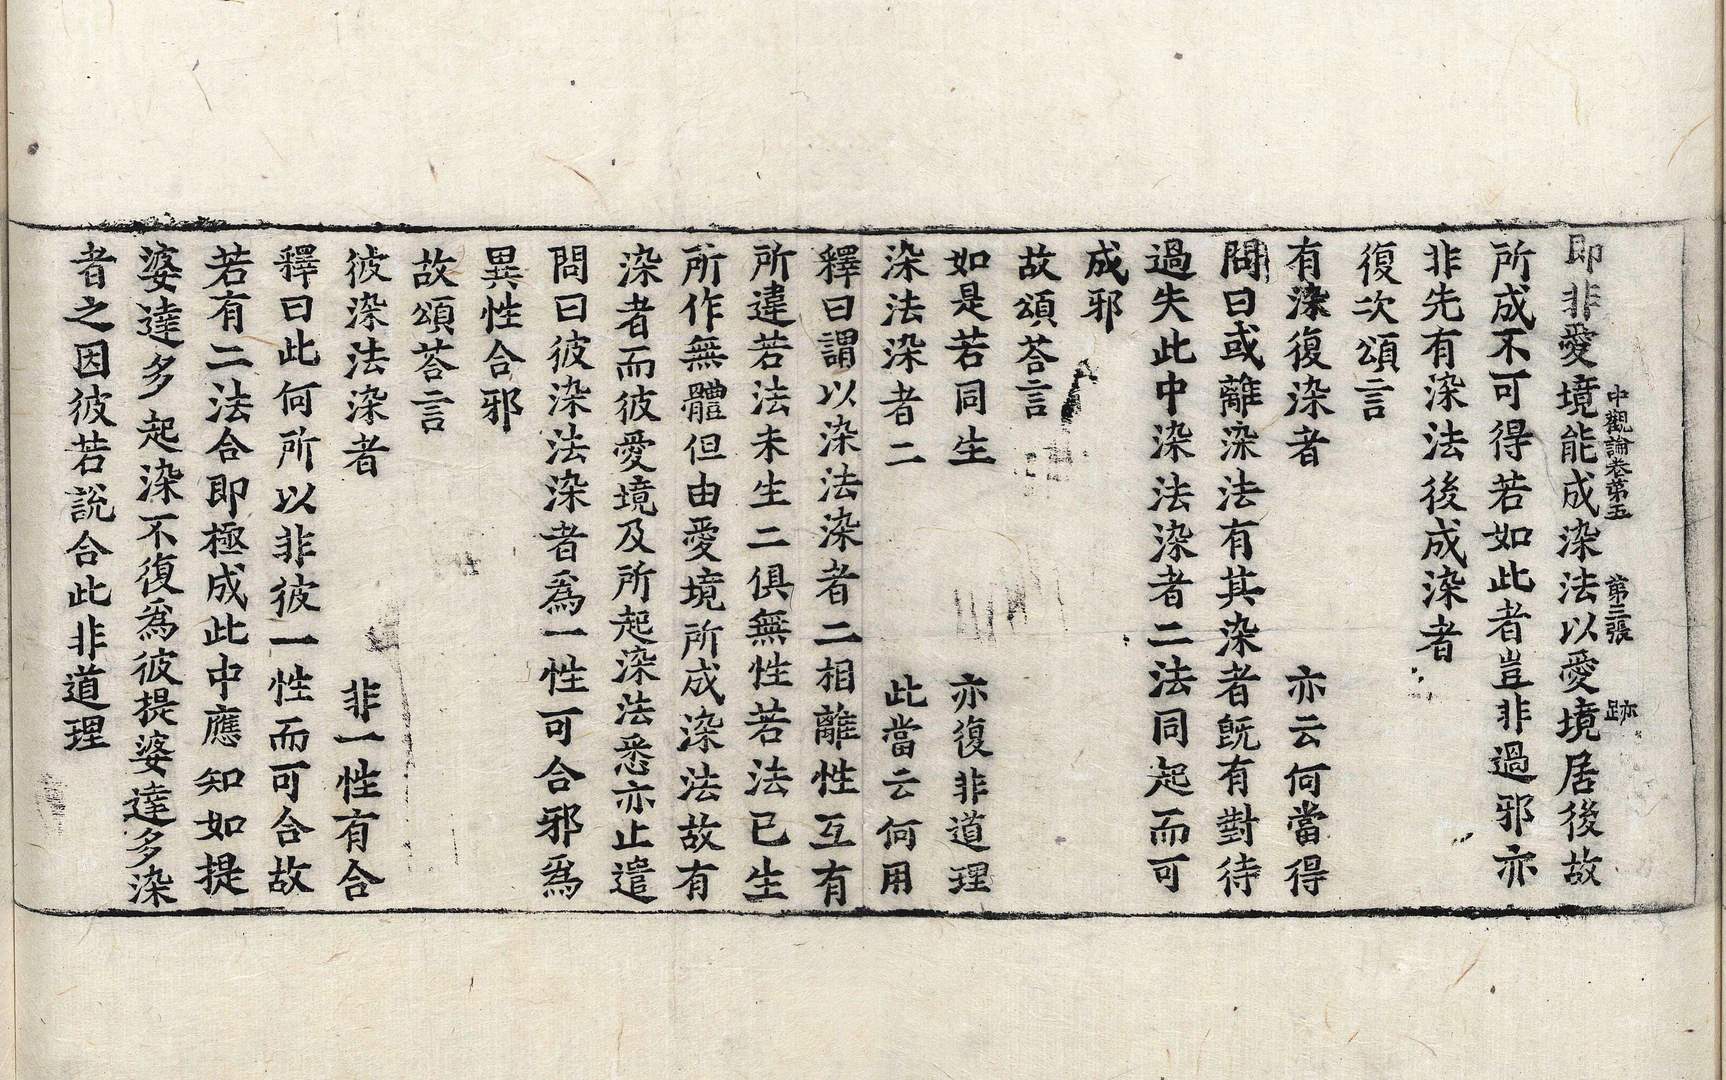 中觀論卷第五 第三張 跡
即非愛境能成染法以愛境居後故
所成不可得若如此者豈非過邪亦
非先有染法後成染者
復次頌言
有染復染者 亦云何當得
問曰或離染法有其染者既有對待
過失此中染法染者二法同起而可
成邪
故頌荅言
如是若同生 亦復非道理
染法染者二 此當云何用
釋曰謂以染法染者二相離性互有
所違若法未生二俱無性若法已生
所作無體但由愛境所成染法故有
染者而彼愛境及所起染法悉亦止遣
問曰彼染法染者爲一性可合邪爲
異性合邪
故頌荅言
彼染法染者 非一性有合
釋曰此何所以非彼一性而可合故
若有二法合即極成此中應知如提
婆達多起染不復爲彼提婆達多染
者之因彼若說合此非道理